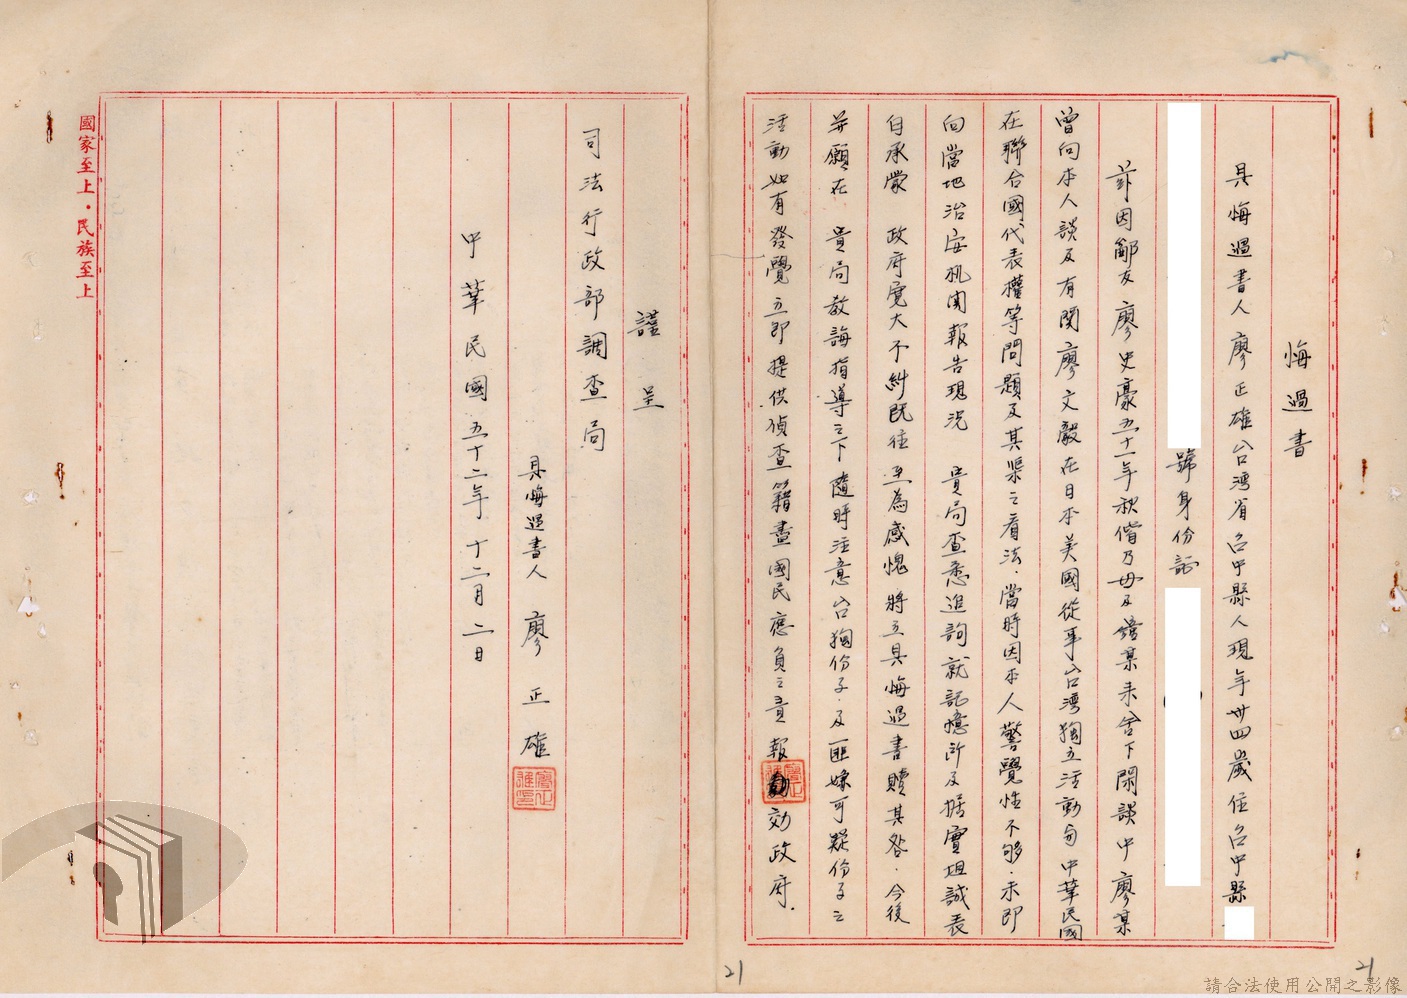 悔過書
具悔過書人廖正雄台湾省台中縣人現年卅四歲住台中縣
號身份証
茲因鄰友廖史豪五十一年秋偕乃母及鍾某來舍下閑談中廖某
曾向本人談及有関廖文毅在日本美國從事台湾獨立活動与中華民國
在聯合國代表權等問題及其渠之看法．當時因本人警覺性不够．未即
向當地治安机関報告現況　貴局查悉追詢就記憶所及据實坦誠表
白承蒙　政府寬大不糾既往至為感愧將立具悔過書贖其咎．今後
并願在　貴局教誨指導之下隨時注意台獨份子．及匪嫌可疑份子之
活動如有發覺立即提供偵查籍盡國民應負之責報効政府．
謹呈
司法行政部調查局
具悔過書人　廖正雄
中華民國五十二年十二月二日
國家至上・民族至上
21
21
請合法使用公開之影像